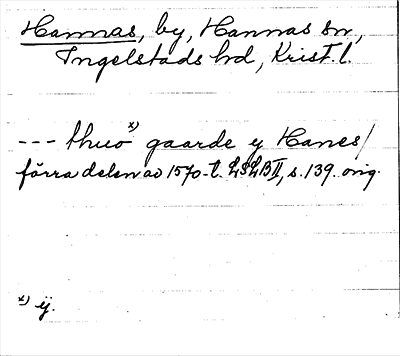 Hannas, by, Hannas sn,
Ingelstads hrd, Krist. l.
--- thuo x) gaarde y Hanes/
förra delen av 1570-t. LSLB II, s. 139. orig.
x) ij.